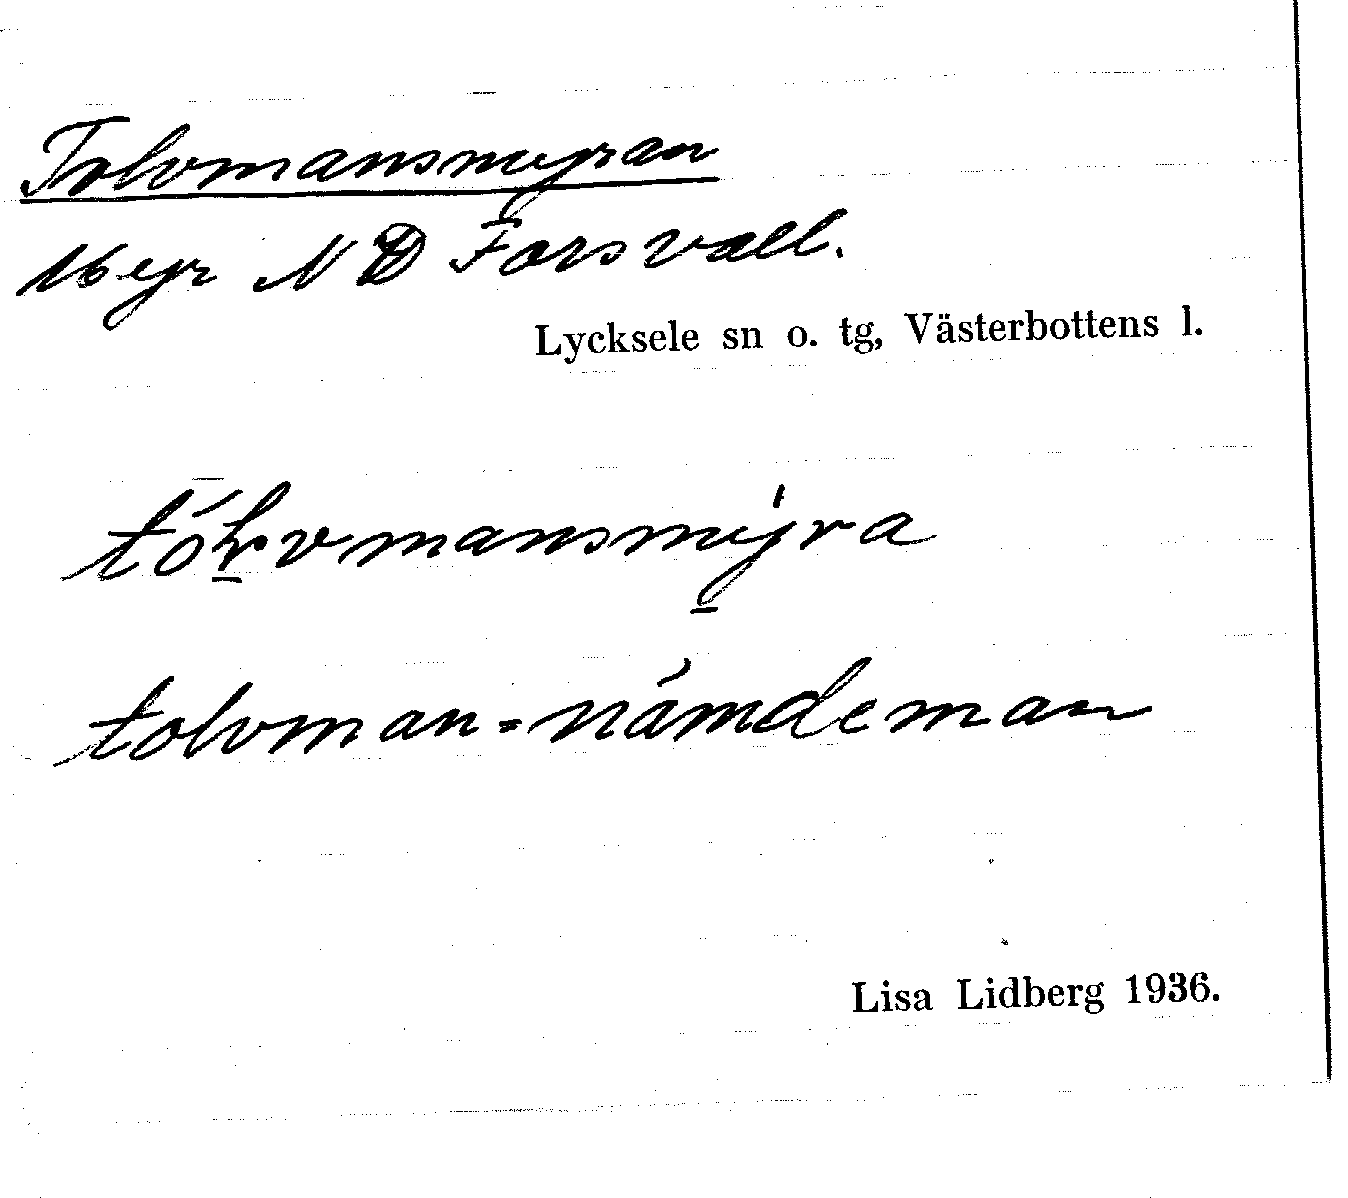 Tolvmansmyran
Myr N Ö Forsvall.
Lycksele sn o. tg, Västerbottens l.
tólvmansmýra
tolvman = nämdeman
Lisa Lidberg 1936.